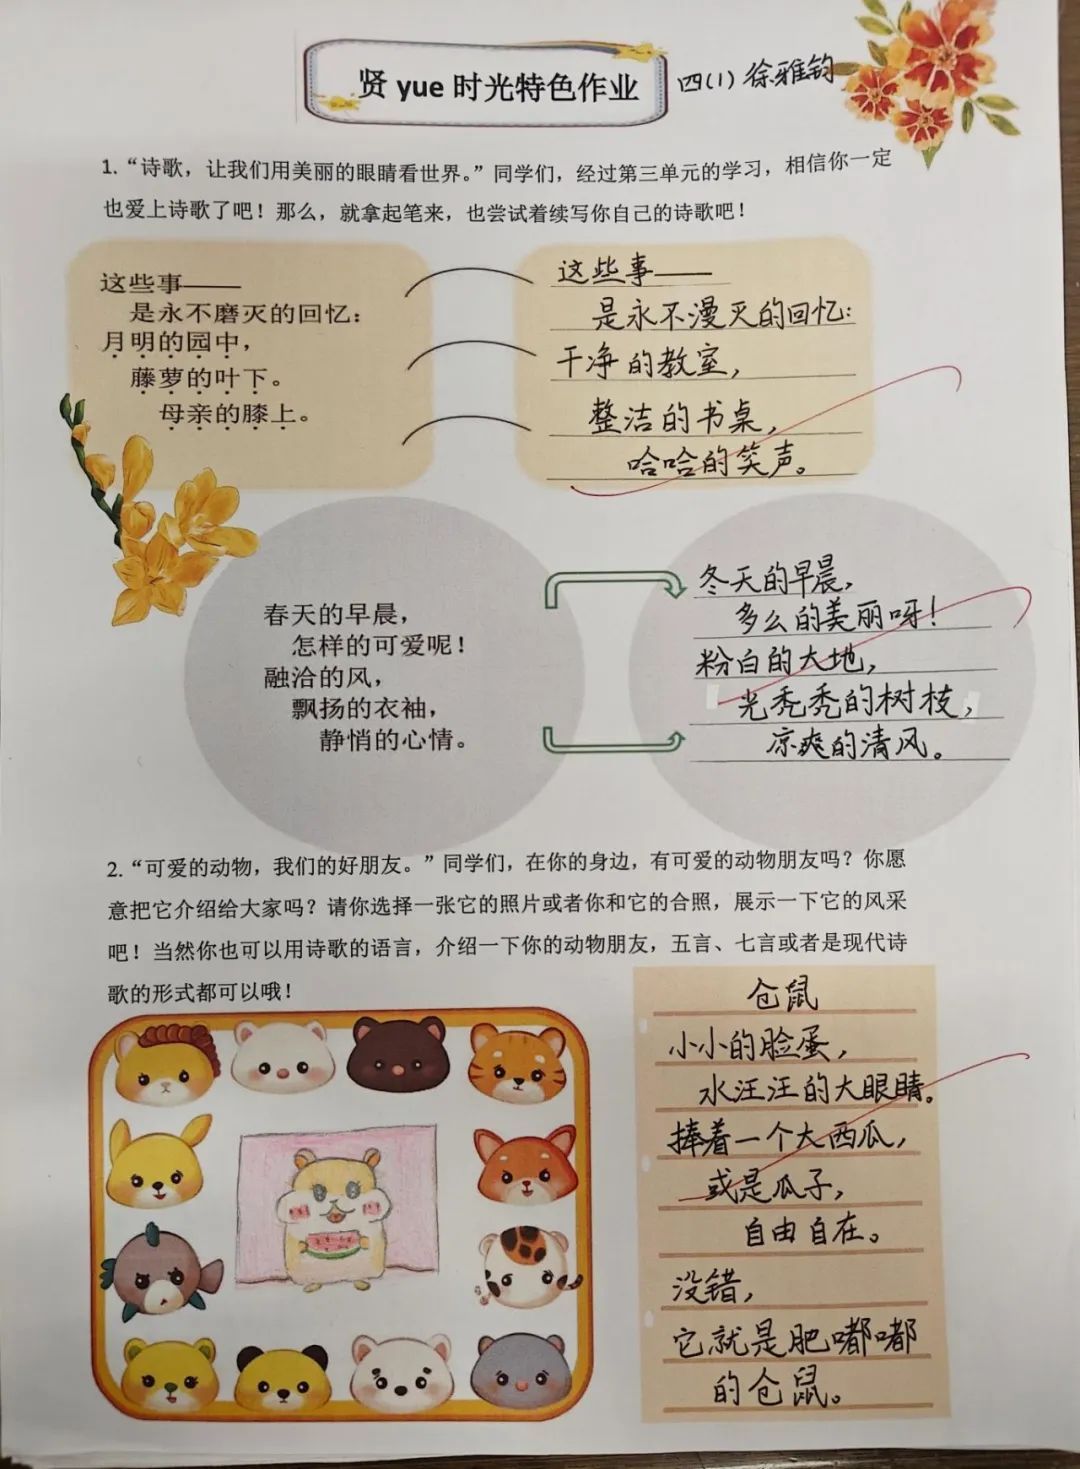 贤 yue 时光特色作业
四(1) 徐雅钧
1.“诗歌，让我们用美丽的眼睛看世界。”同学们，经过第三单元的学习，相信你一定
也爱上诗歌了吧！那么，就拿起笔来，也尝试着续写你自己的诗歌吧！
这些事——
是永不磨灭的回忆：
月明的园中，
藤萝的叶下。
母亲的膝上。
这些事——
是永不漫灭的回忆:
干净的教室，
整洁的书桌，
哈哈的笑声。
春天的早晨，
怎样的可爱呢！
融洽的风，
飘扬的衣袖，
静悄的心情。
冬天的早晨，
多么的美丽呀！
粉白的大地，
光秃秃的树枝，
凉爽的清风。
2.“可爱的动物，我们的好朋友。”同学们，在你的身边，有可爱的动物朋友吗？你愿
意把它介绍给大家吗？请你选择一张它的照片或者你和它的合照，展示一下它的风采
吧！当然你也可以用诗歌的语言，介绍一下你的动物朋友，五言、七言或者是现代诗
歌的形式都可以哦！
仓鼠
小小的脸蛋，
水汪汪的大眼睛。
捧着一个大西瓜，
或是瓜子，
自由自在。
没错，
它就是肥嘟嘟
的仓鼠。